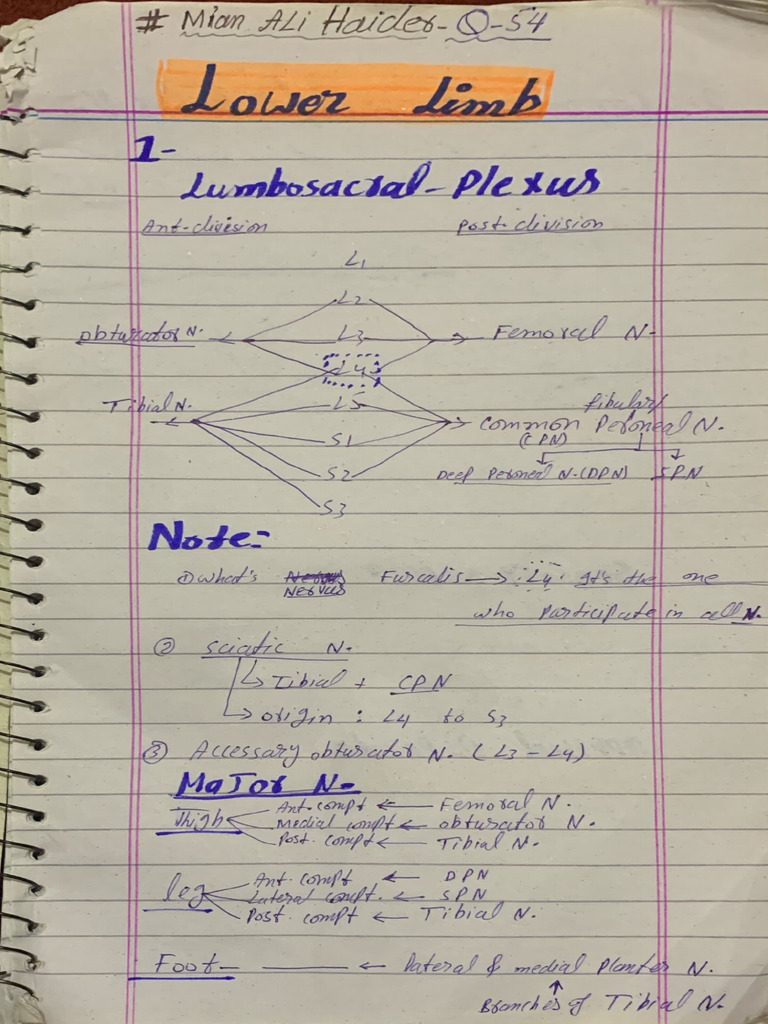 # Mian Ali Haider- Q-54
Lower Limb
1-
Lumbosacral-Plexus
Ant-division Post-division
L1
L2
Obturator N. L3 Femoral N-
L4
Tibial N. L5 fibular/
Common Peroneal N.
(CPN)
S1
S2 Deep Peroneal N-(DPN) SPN
S3
Note:-
① what's Nervus Furcalis → L4. It's the one
who Participate in all N.
② Sciatic N.
↳ Tibial + CPN
↳ origin : L4 to S3
③ Accessary obturator N. (L3 - L4)
Major N-
Thigh Ant-compt ← Femoral N.
Medial compt ← obturator N.
Post. compt ← Tibial N.
leg Ant. compt ← DPN
Lateral compt. ← SPN
Post. compt ← Tibial N.
Foot- ← Lateral & medial Planter N.
↑
Branches of Tibial N.